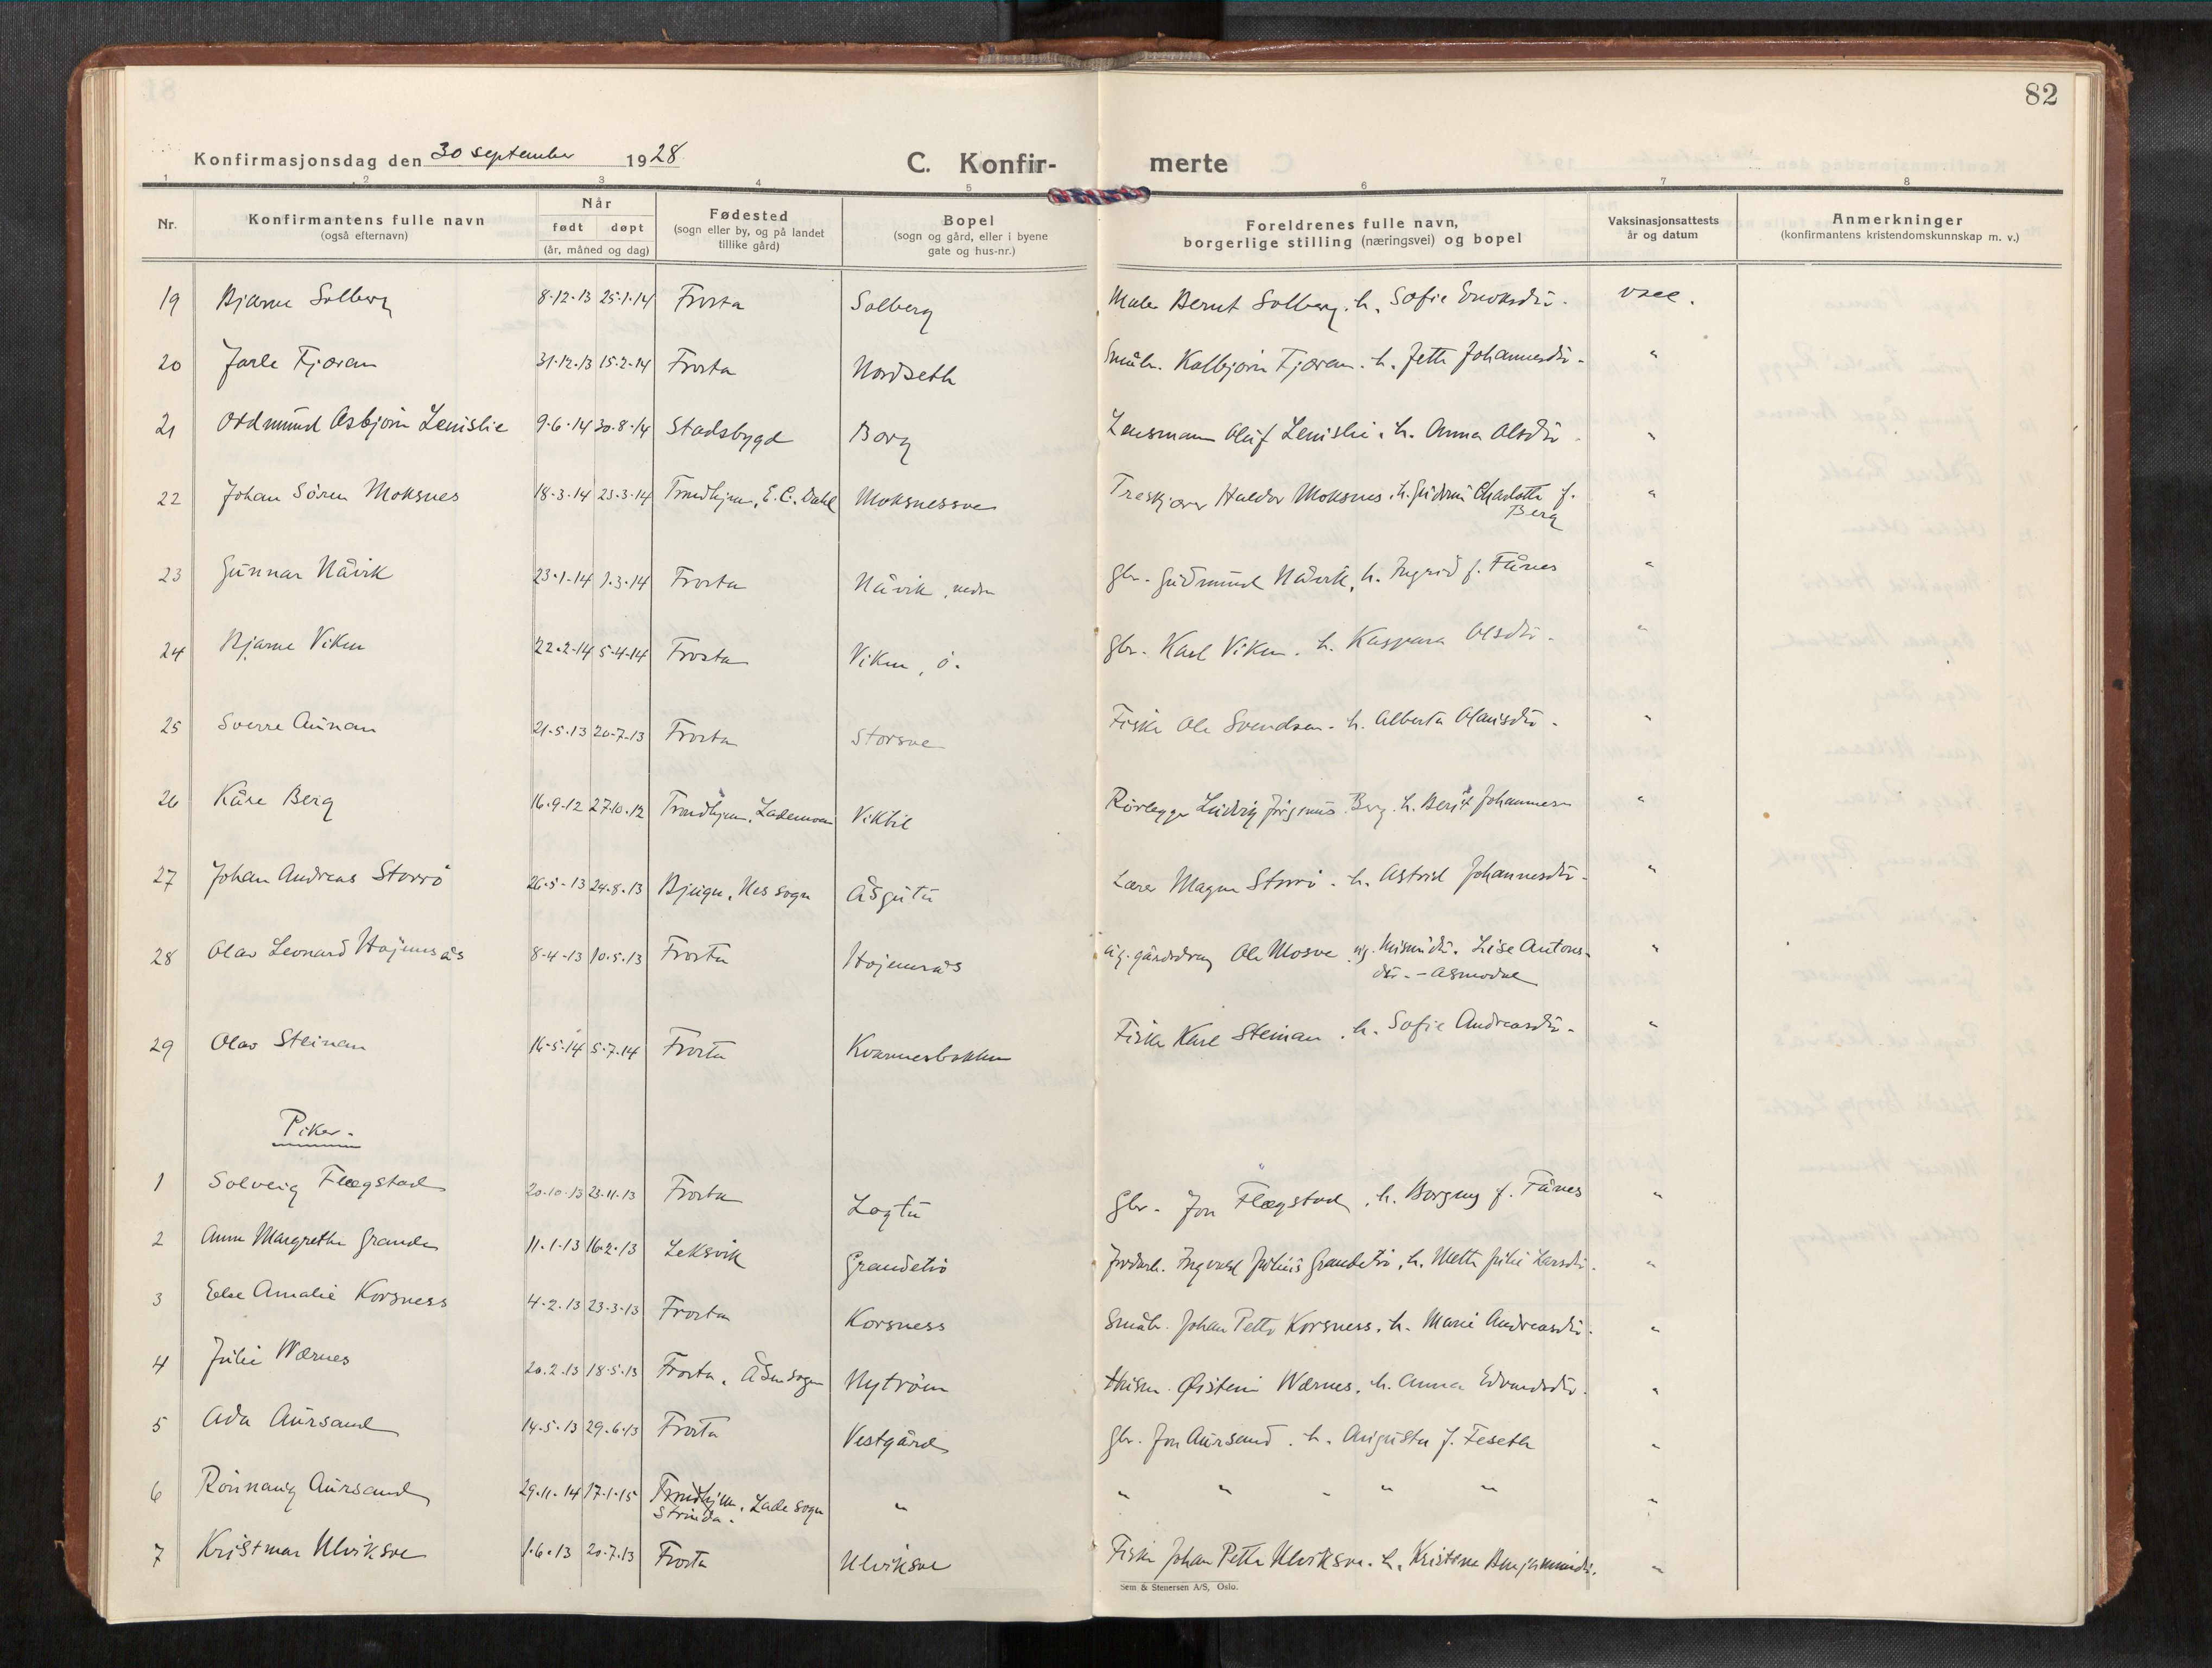 82
Konfirmasjonsdag den 30 september 1928
C. Konfir- merte
1 2 3 4 5 6 7 8
Nr. Konfirmantens fulle navn (også efternavn) Når født døpt (år, måned og dag) Fødested (sogn eller by, og på landet tillike gård) Bopel (sogn og gård, eller i byene gate og hus-nr.) Foreldrenes fulle navn, borgerlige stilling (næringsvei) og bopel Vaksinasjonsattests år og datum Anmerkninger (konfirmantens kristendomskunnskap m. v.)
19 Bjarne Solberg 8-12-13 25-1-14 Frosta Solberg Maler Bernt Solberg. h. Sofie vacc.
20 Jarle Fjæran 31-12-13 15-2-14 Frosta Nordseth Småbr. Kolbjørn Fjæran. h. Jette Johannesdtr. "
21 Oddmund Asbjørn Lenislie 9-6-14 30-8-14 Stadsbygd Borg Lensmann Oluf Lenislie. h. Anna Olsdtr "
22 Johan Sören Moksnes 18-3-14 23-3-14 Trondhjem, E.C. Dahl Moksnessve Treskjærer Haldor Moksnes. h. Charlotte f. "
Berg
23 Gunnar Nåvik 23-1-14 1-3-14 Frosta Nåvik, nedre Gbr. Gudmund Nåvik, h. Ingrid f. Fånes "
24 Bjarne Viken 22-2-14 5-4-14 Frosta Viken, ö. Gbr. Karl Viken. h. Kaspara Olsdtr. "
25 Sverre Aunan 21-5-13 20-7-13 Frosta Storsve Fisker Ole Svendsen. h. Alberta Olausdtr. "
26 Kåre Berg 16-9-12 27-10-12 Trondhjem, Lademoen Viktil Rörlegger Ludvig Berg. h. Berit Johannesen "
27 Johan Andreas Storrö 26-5-13 24-8-13 Bjugn, Nes sogn Åsgutu Lærer Magne Storrö. h. Astrid Johannesdtr. "
28 Olav Leonard Hojemsås 8-4-13 10-5-13 Frosta Hojemsås ug. gårdsdreng Ole Mosve ug. Lise Antons- "
dtr. - Åsmodal
29 Olav Steinan 16-5-14 5-7-14 Frosta Kvamnesbakken Fisker Karl Steinan. h. Sofie Andreasdtr. "
Piker.
1 Solveig Flægstad 20-10-13 23-11-13 Frosta Logtu Gbr. Jon Flægstad, h. Borgny f. Fånes "
2 Anne Margrethe Grande 11-1-13 16-2-13 Leksvik Grandetrö Jordarb. Ingvald Julius Grandetrö, h. Mette Julie Larsdtr. "
3 Else Amalie Korsness 4-2-13 23-3-13 Frosta Korsness Småbr. Johan Petter Korsness. h. Marie Andreasdtr. "
4 Julie Wærnes 20-2-13 18-5-13 Frosta, Åsen sogn Nytröen Husm. Øistein Wærnes. h. Anna Edvardsdtr. "
5 Ada Aursand 14-5-13 29-6-13 Frosta Vestgård Gbr. Jon Aursand. h. Augusta f. Feseth "
6 Rönnaug Aursand 29-11-14 17-1-15 Trondhjem, Lade sogn " " " " " " "
Strinda.
7 Kristmar Ulviksve 1-6-13 20-7-13 Frosta Ulviksve Fisker Johan Petter Ulviksve. h. Kristine Benjaminsdtr. "
Sem & Stenersen A/S, Oslo.